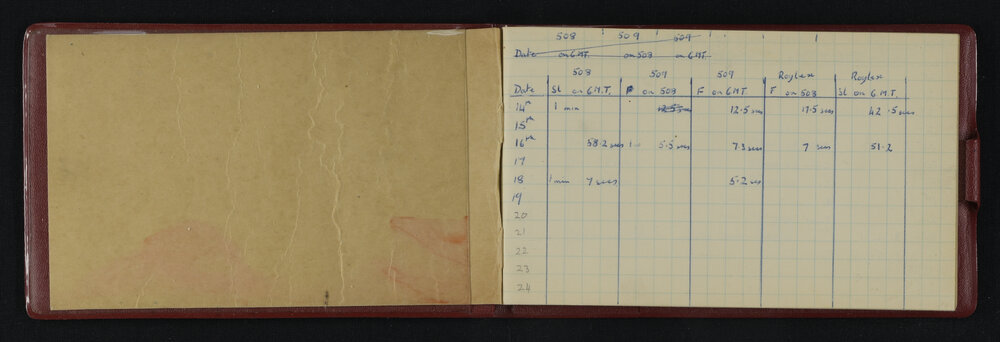 508 509 509
Date on G.M.T. on 508 on G.M.T.
508 509 509 Roglex Roglex
Date Sl on G.M.T. F on 508 F on G.M.T. F on 508 Sl on G.M.T.
14th 1 min 12.5 secs 17.5 secs 42.5 secs
15th
16th 58.2 secs 5.5 secs 7.3 secs 7 secs 51.2
17
18 1 min 7 secs 5.2 secs
19
20
21
22
23
24